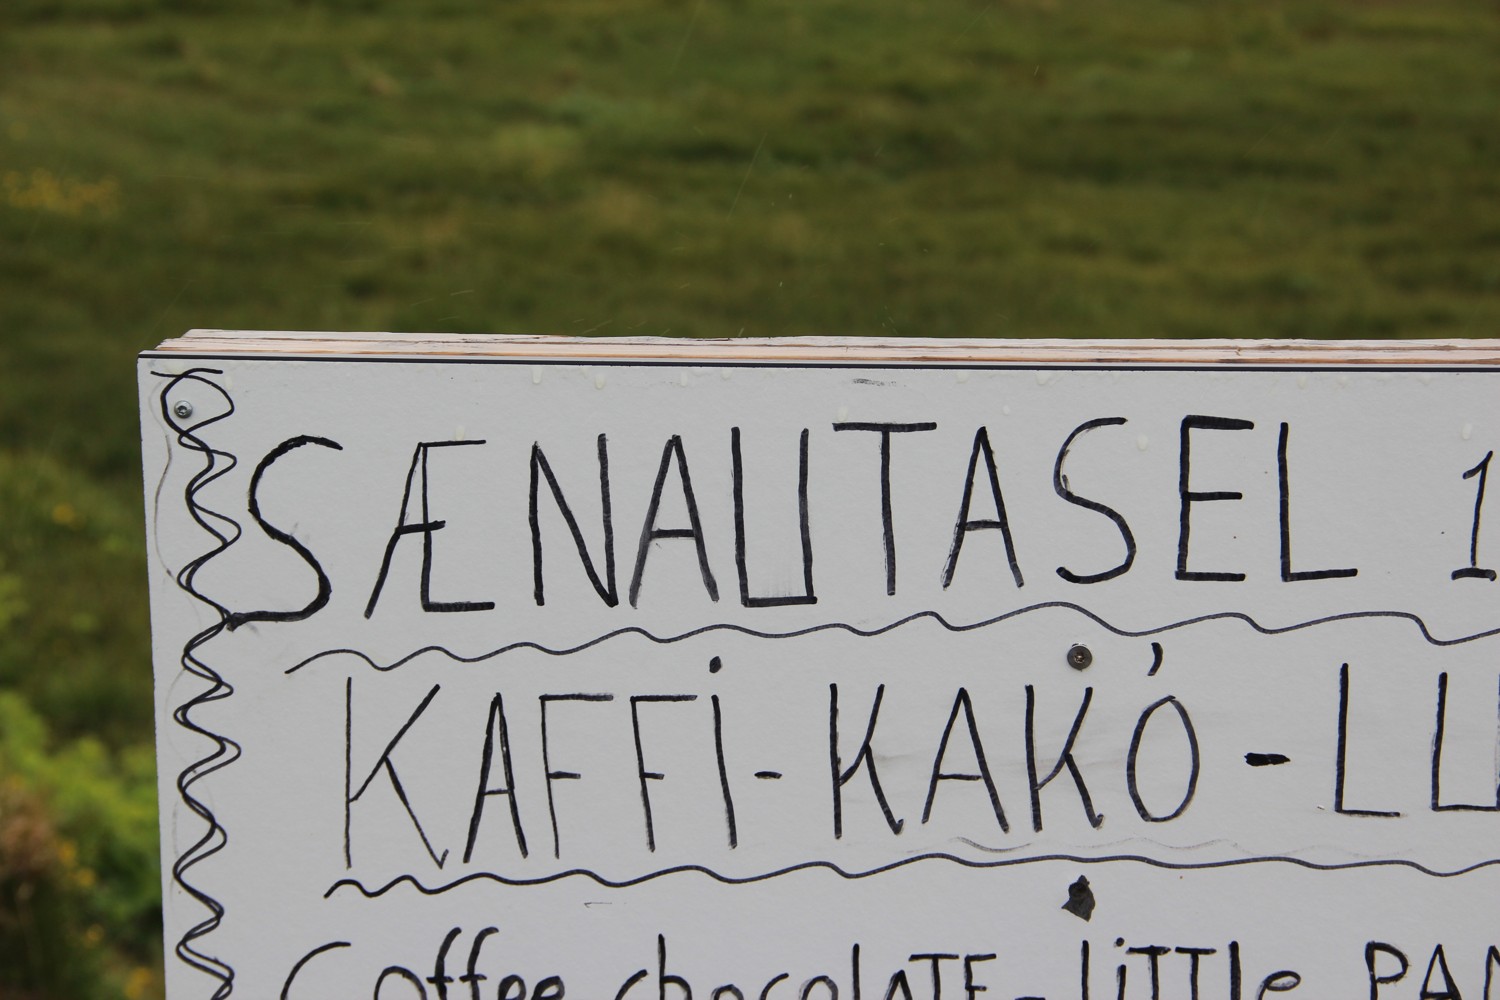 SÆNAUTASEL 1
KAFFi-KAKÓ-LU
Coffee chocolATE-liTTle PAN